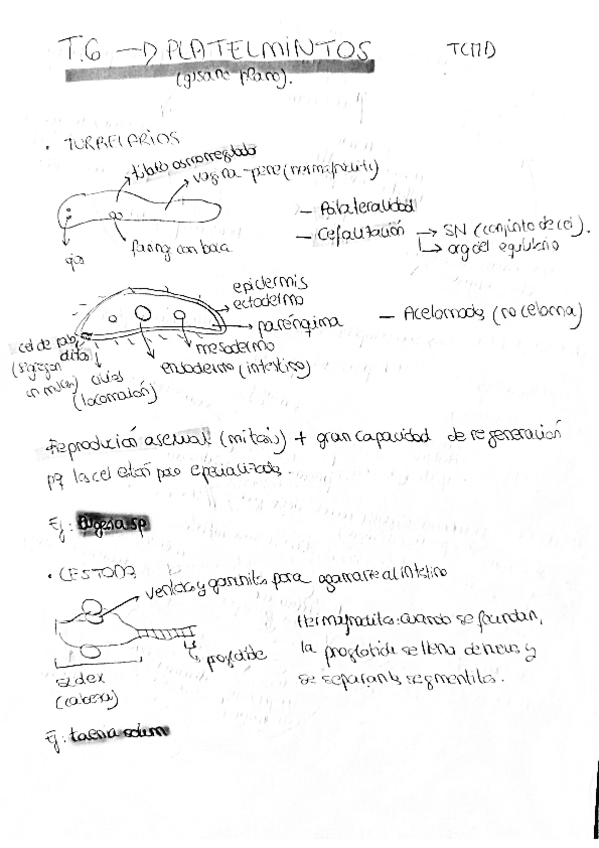 T.6 → PLATELMINTOS
(gusano plano).
• TURBELARIOS
tubito osmoregulado
vagina-pene (normalmente)
ojos
faring con boca
— Bilateralidad
— Cefalización → SN (conjunto de cel).
↳ org del equilibrio
epidermis
ectodermo
parénquima
mesodermo
endodermo (intestino)
cilios
(locomoción)
— Acelomados (no celoma)
Reproducción asexual (mitosis) + gran capacidad de regeneración
pq las cel están poco especializadas.
Ej: Dugesia sp
• CESTODA
ventosas y ganchitos para agarrarse al intestino
proglótide
(cabeza)
Hermafroditas: cuando se fecundan,
la proglotide se llena de huevos y
se separan los segmentitos.
Ej: taenia solium